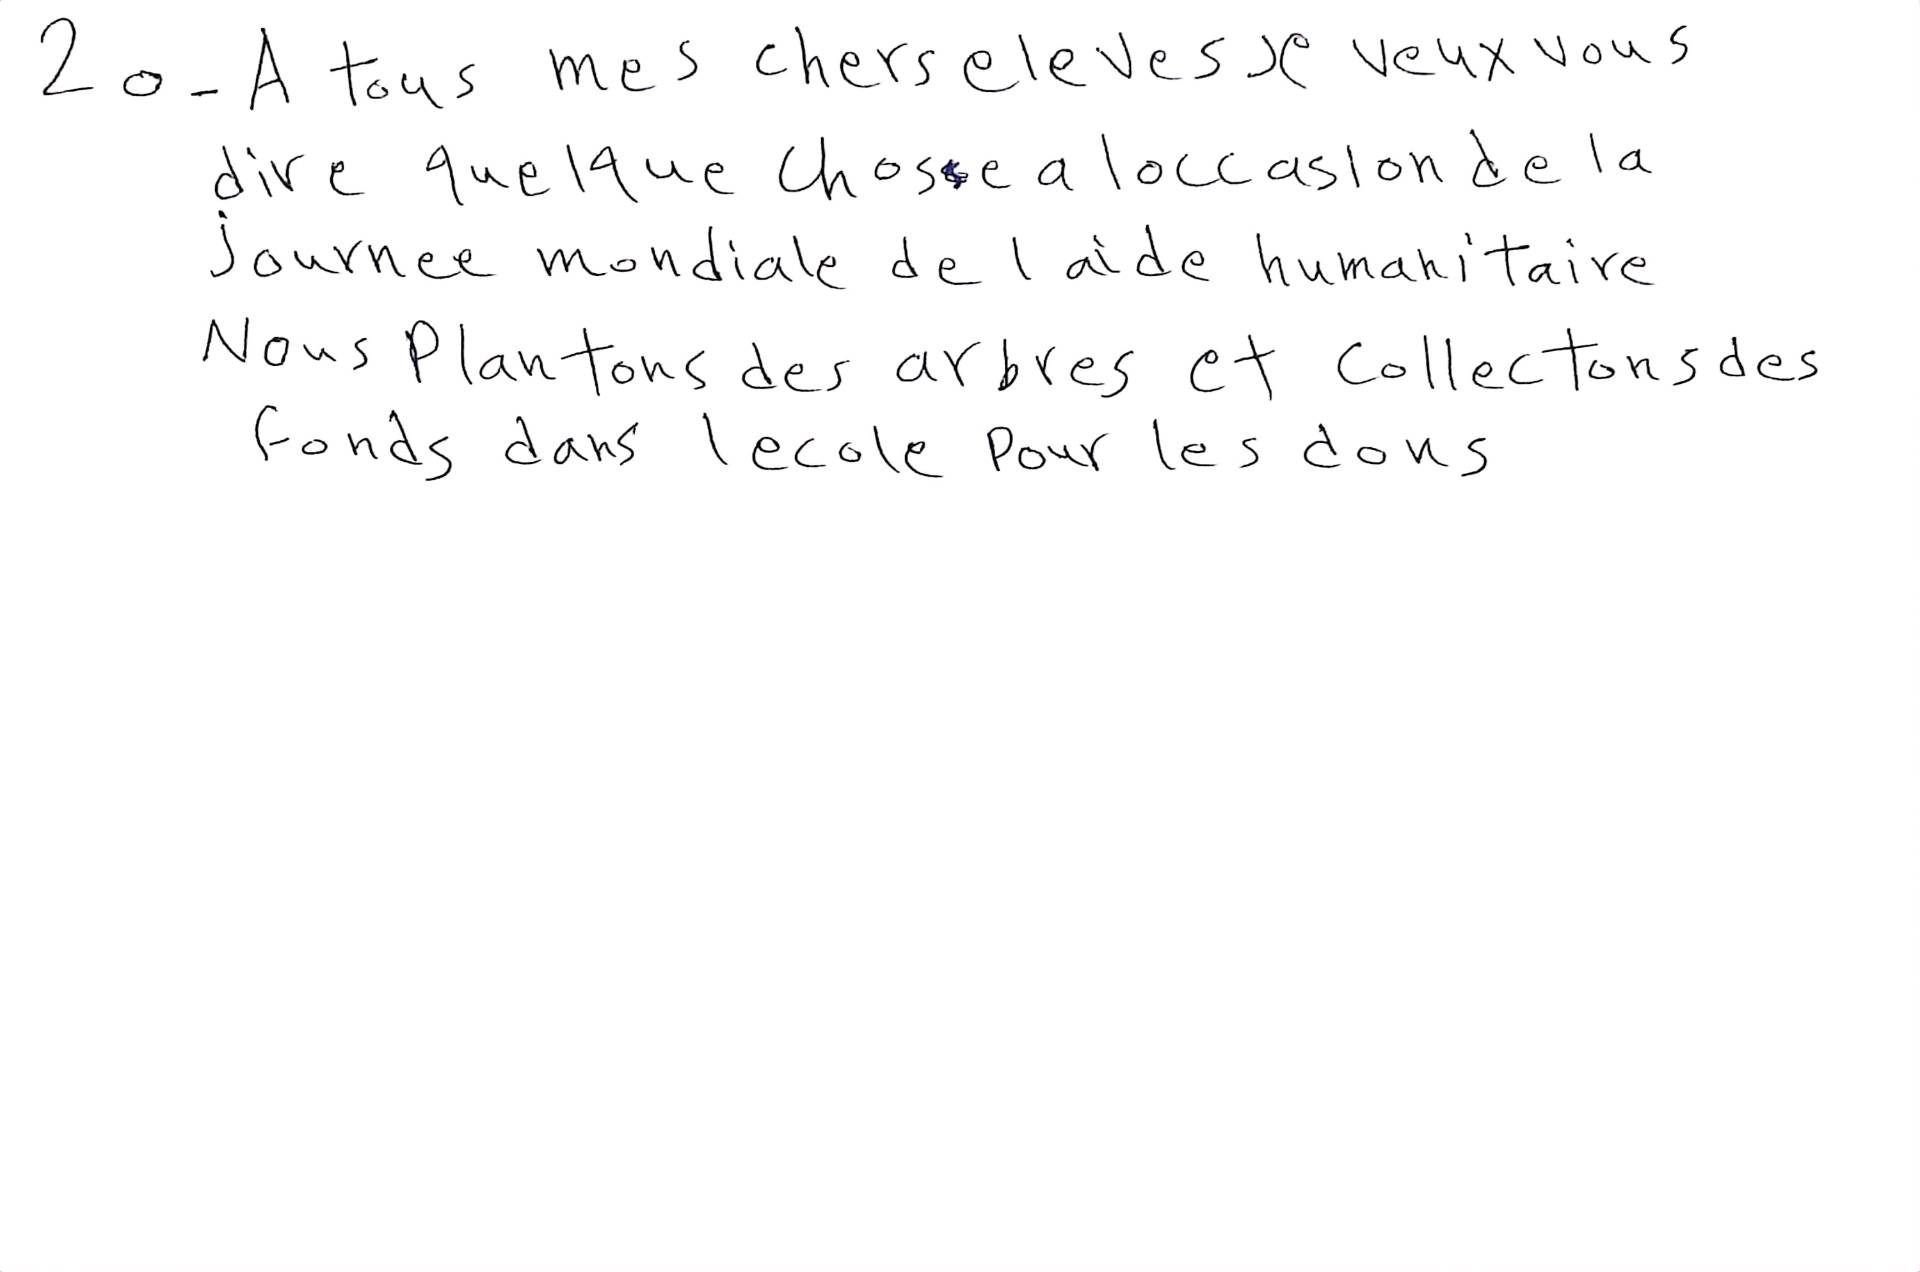 20 - A tous mes chers eleves je veux vous
dire quelque chose a loccasion de la
journee mondiale de l aide humanitaire
Nous plantons des arbres et collectons des
fonds dans lecole pour les dons